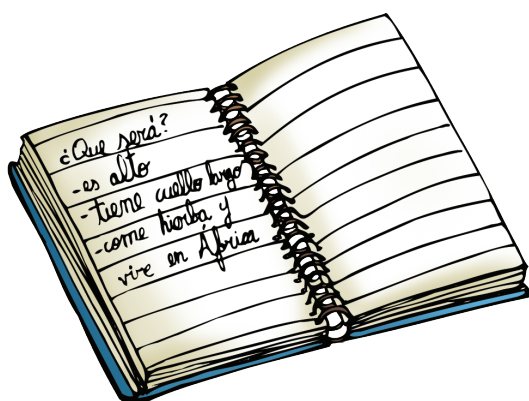 ¿Que será?
-es alto
-tiene cuello largo
-come hierba y
vive en África